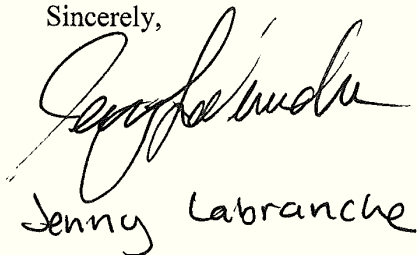 Sincerely,
Jenny Labranche
Jenny Labranche